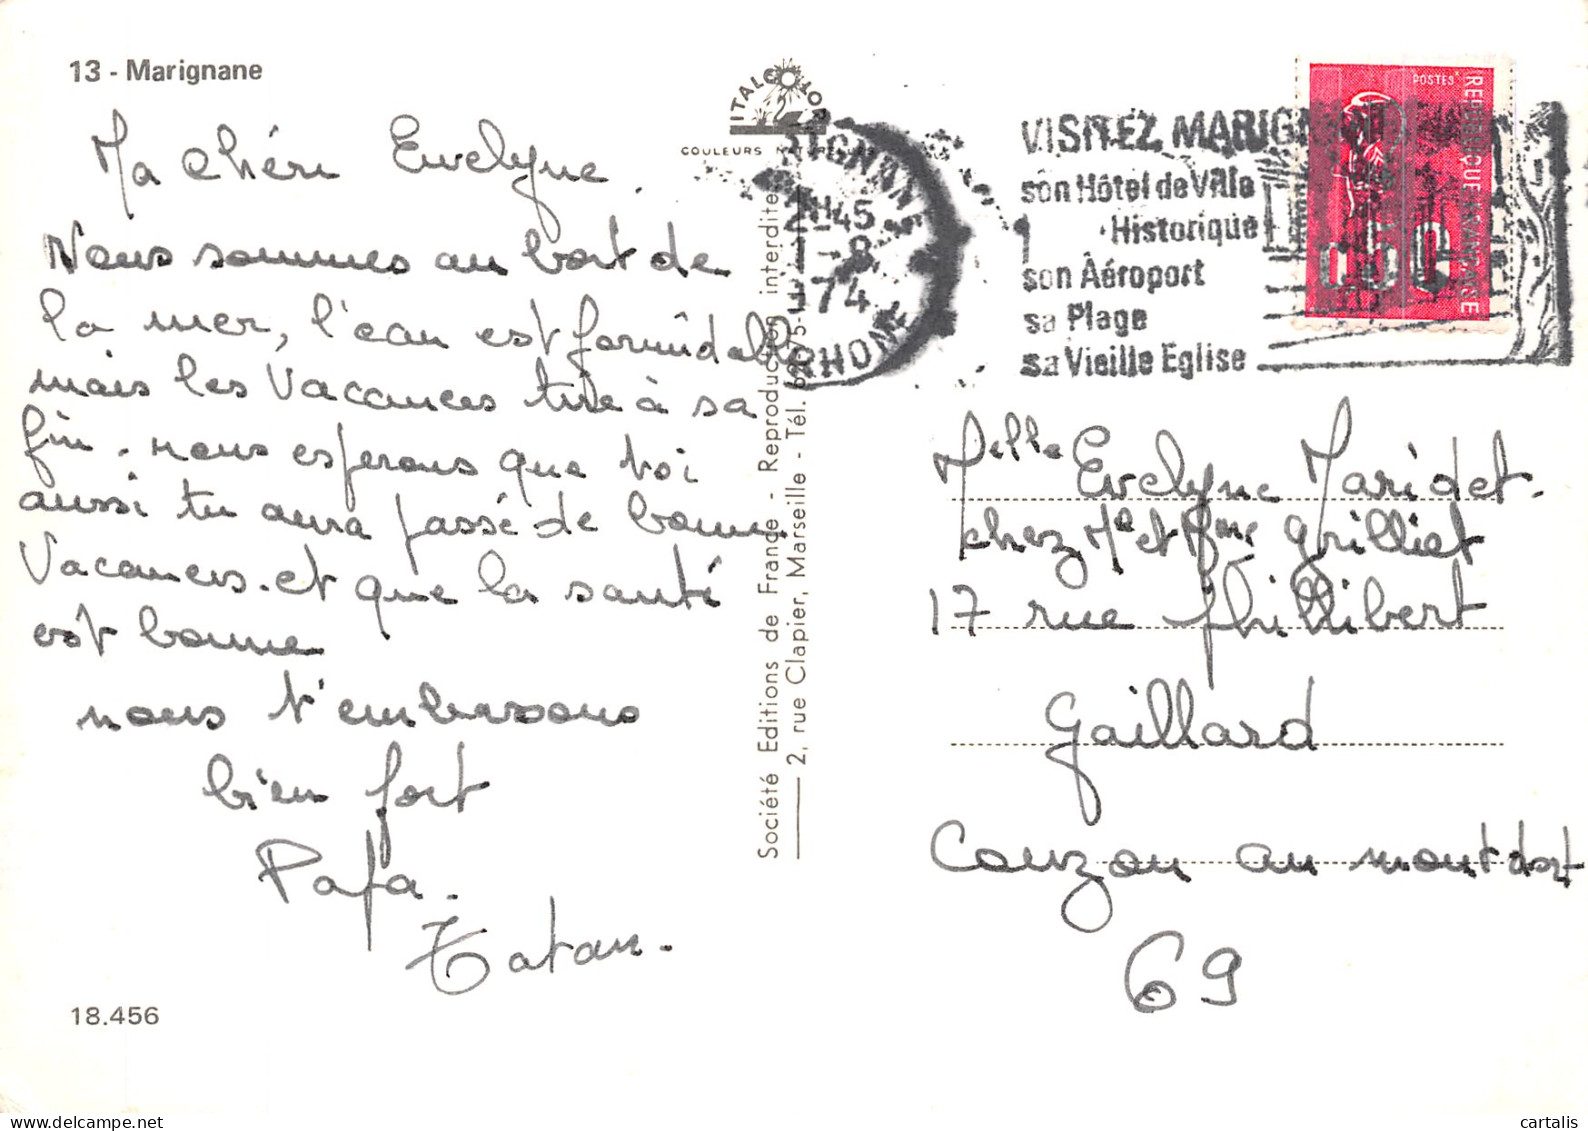 13 - Marignane
Ma chéri Evelyne.
Nous sommes au bort de
la mer, l'eau est formidable
mais les Vacances tire à sa
fin. nous esperons que toi
aussi tu aura passé de bonne
Vacances. et que la santé
est bonne
nous t'embrasons
bien fort
Papa.
Tatan.
18.456
ITALCOLOR
COULEURS NATURELLES
Société Editions de France - Reproduction interdite
2, rue Clapier, Marseille - Tél.
MARIGNANE
21H45
1-8
1974
RHONE
VISITEZ MARIGNANE
son Hôtel de Ville
Historique
son Aéroport
sa Plage
sa Vieille Eglise
POSTES
REPUBLIQUE FRANCAISE
Melle Evelyne Maridet.
chez Mr et Mme Grilliet
17 rue Phillibert
Gaillard
Couzon au mont dort
69
cartalis.com